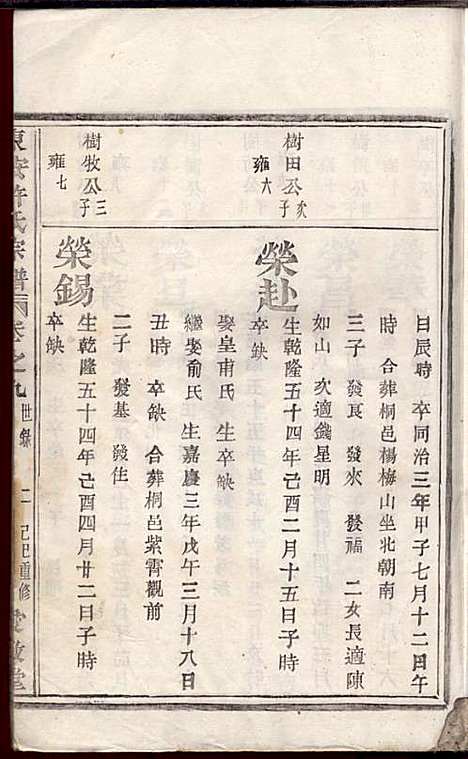 日辰時 卒同治三年甲子七月十二日午
時 合葬桐邑楊梅山坐北朝南
三子 發良 發來 發福 二女長適陳
如山 次適錢星明
樹田公次子
雍六
榮赴
生乾隆五十四年己酉二月十五日子時
卒缺
娶皇甫氏 生卒缺
繼娶俞氏 生嘉慶三年戊午三月十八日
丑時 卒缺 合葬桐邑紫霄觀前
二子 發基 發住
樹牧公三子
雍七
榮錫
生乾隆五十四年己酉四月廿二日子時
卒缺
東安許氏宗譜 卷之九 世錄 二 己巳重修